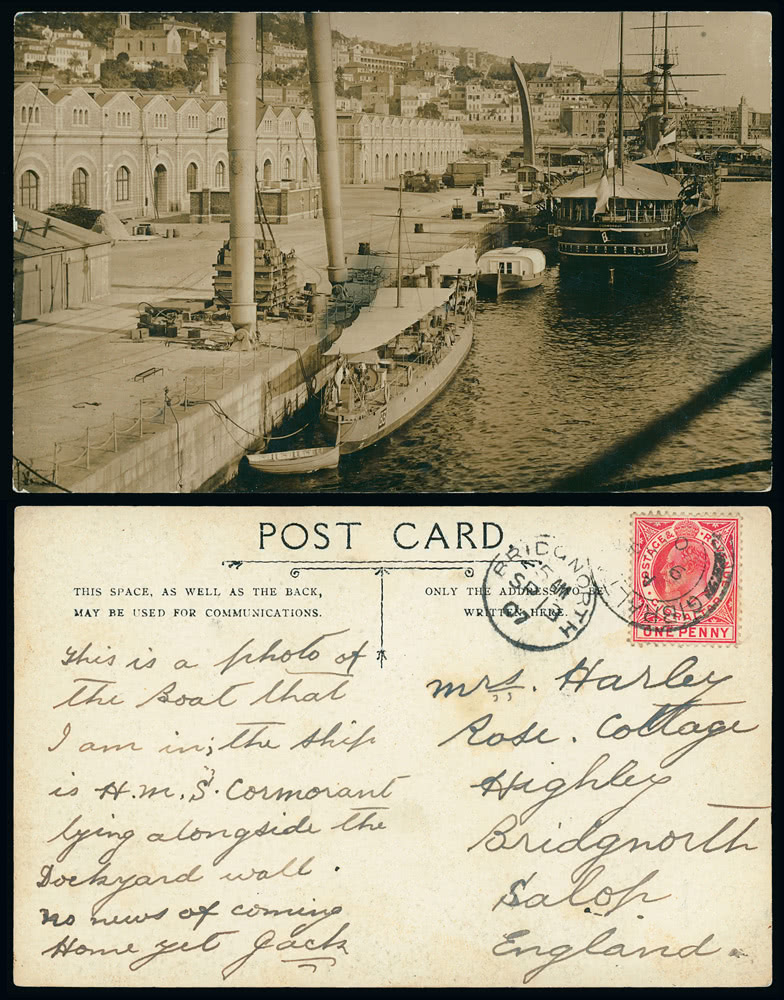 POST CARD.
THIS SPACE, AS WELL AS THE BACK,
MAY BE USED FOR COMMUNICATIONS.
ONLY THE ADDRESS TO BE
WRITTEN HERE.
BRIDGNORTH
SP
07
GIBRALTAR
POSTAGE &
ONE PENNY
This is a photo of
the Boat that
I am in; the ship
is H.M.S. Cormorant
lying alongside the
Dockyard wall.
no news of coming
Home yet Jack
Mrs. Harley
Rose. Cottage
Highley
Bridgnorth
Salop
England.